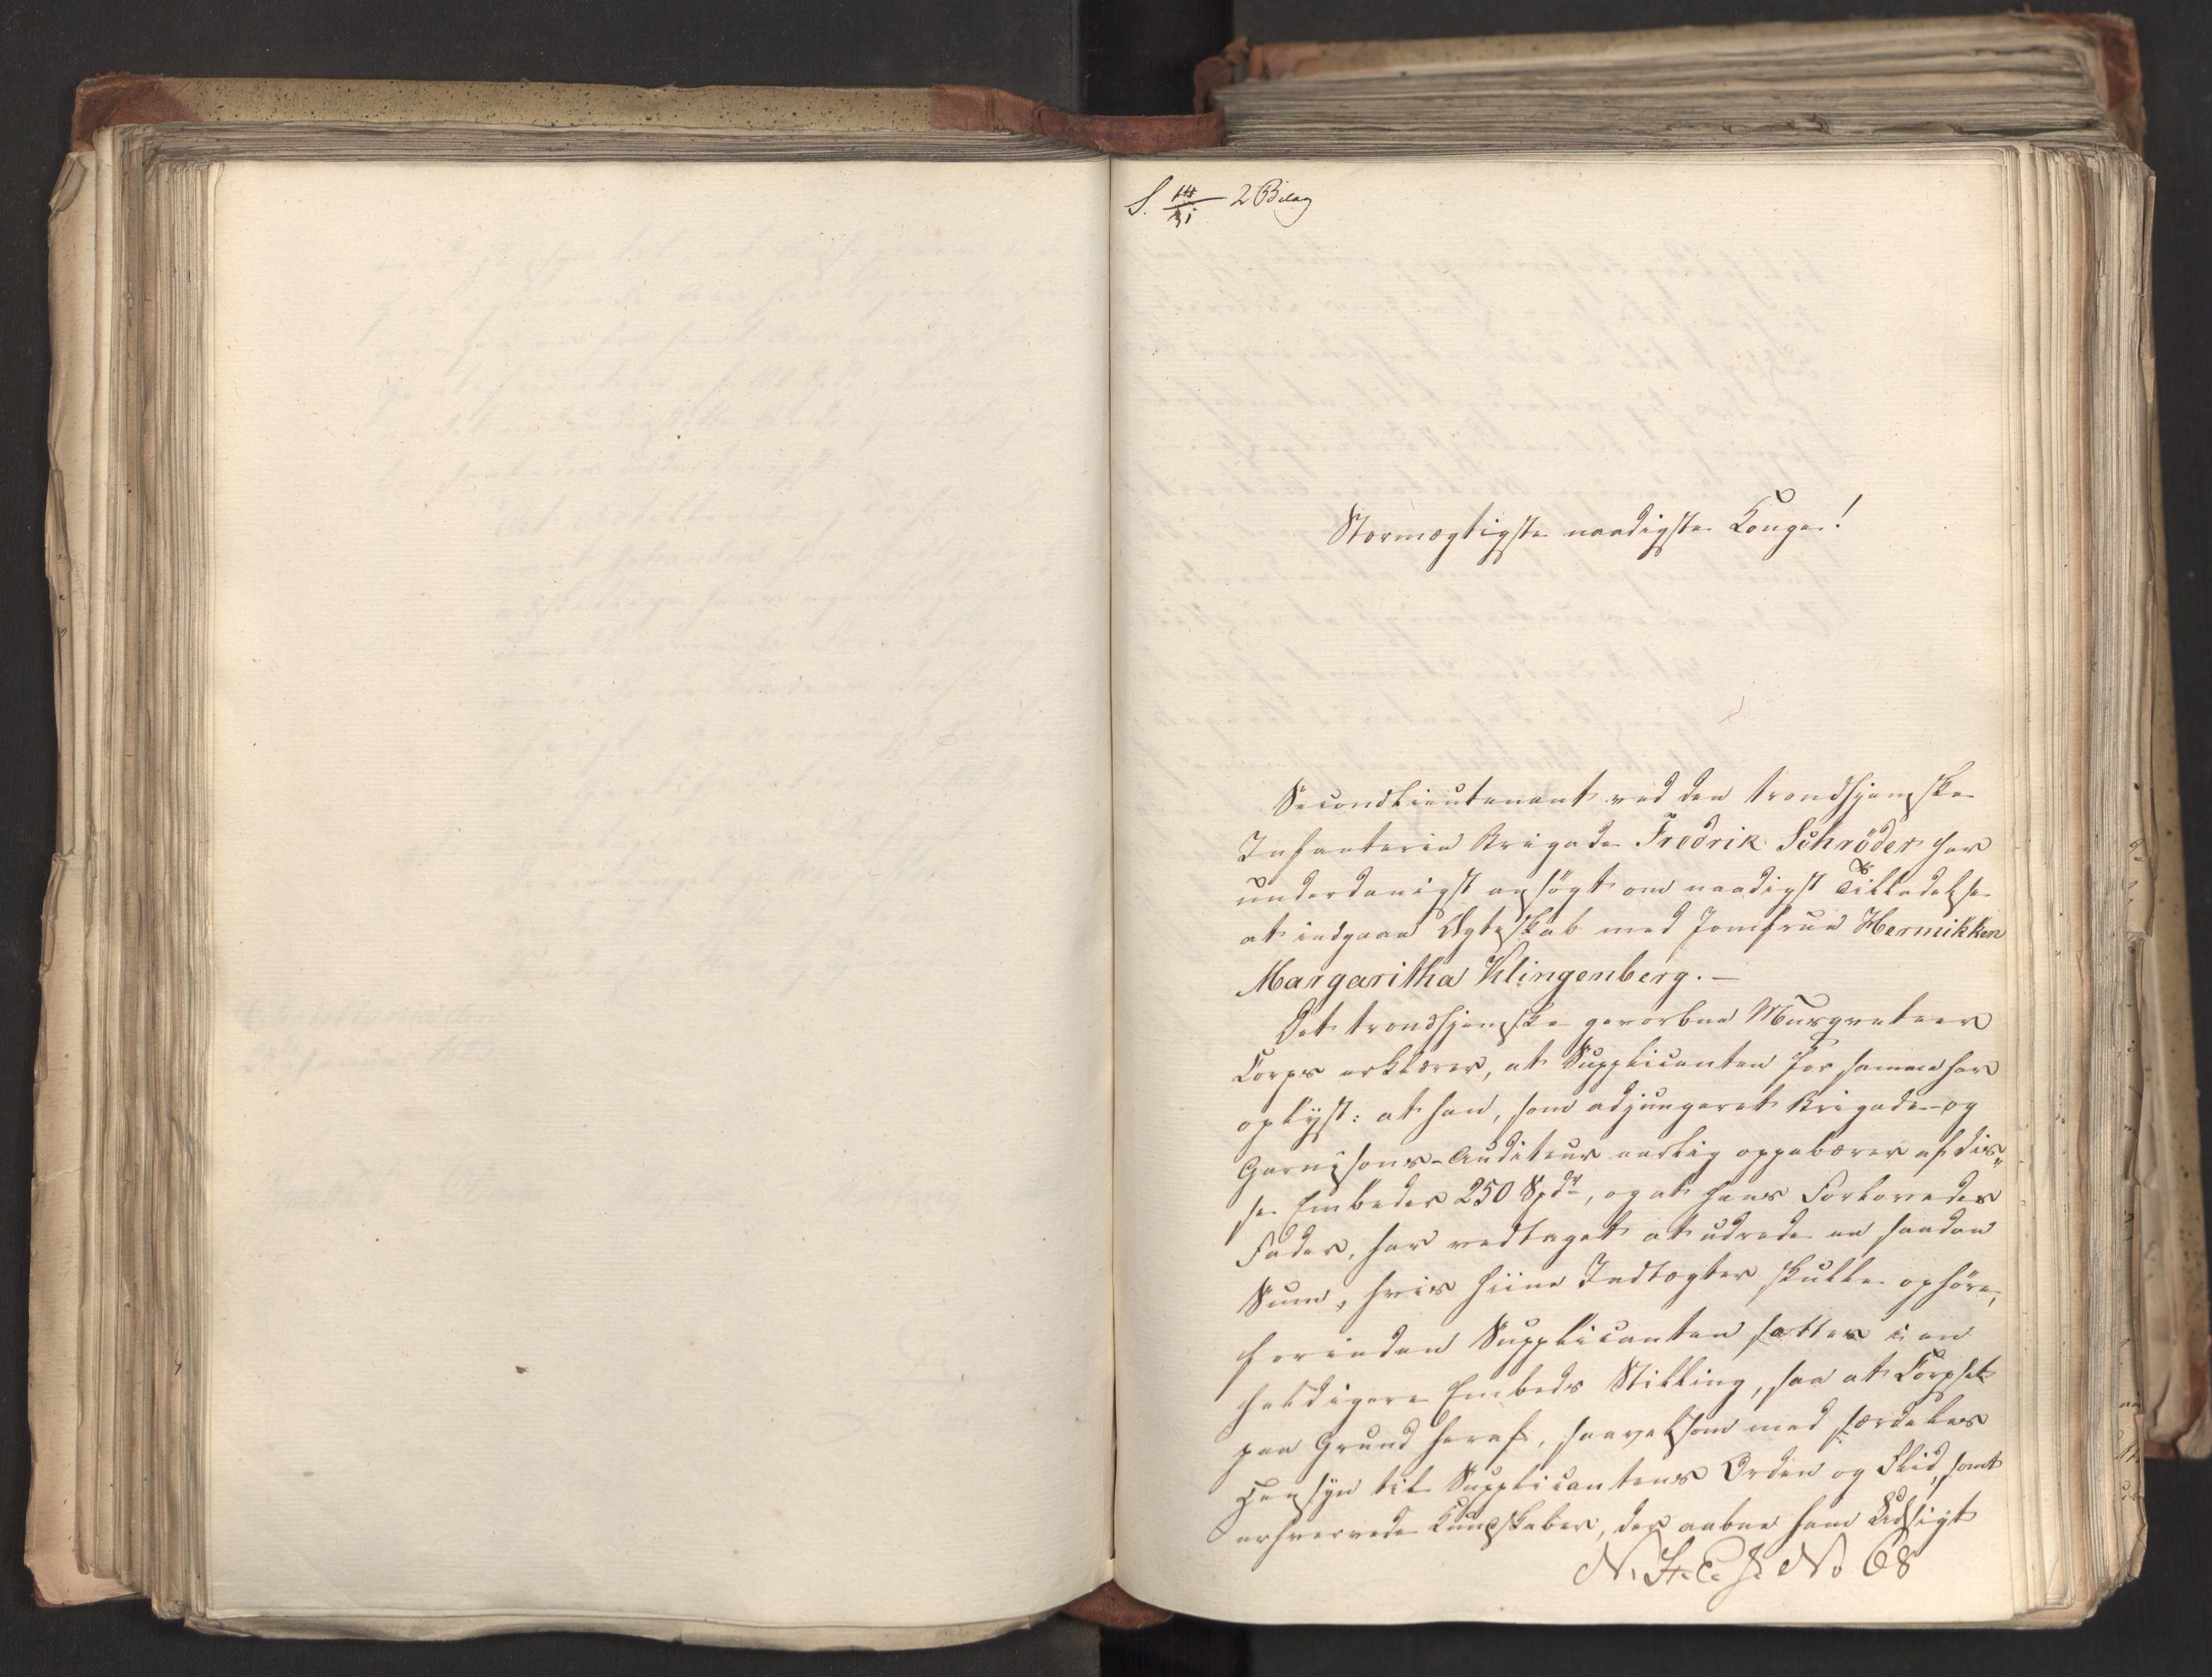 2 Bilag
Stormægtigste naadigste Konge!
Secondlieutenant ved den trondhjemske
Infanterie Brigade Fredrik Schrøder har
underdanigst ansøgt om naadigst Tilladelse
at indgaae Ægteskab med Jomfrue Hermikken
Margaritha Klingenberg.—
Det trondhjemske gevorbne Musqueteer
Corps erklærer, at Supplicanten for samme har
oplyst: at han, som adjungeret Brigade- og
Garnisons-Auditeur aarlig oppebærer af dis„
se Embeder 250 Spdr, og at hans Forlovedes
Fader, har vedtaget at udrede en saadan
Sum, hvis hiine Indtægter skulle ophøre,
forinden Supplicanten sættes i en
heldigere Embeds Stilling, saa at Corpset
paa Grund heraf, saavelsom med særdeles
Hensyn til Supplicantens Orden og Flid, samt
erhvervede Kundskaber, der aabne ham Udsigt
N. H. C. J. No 68